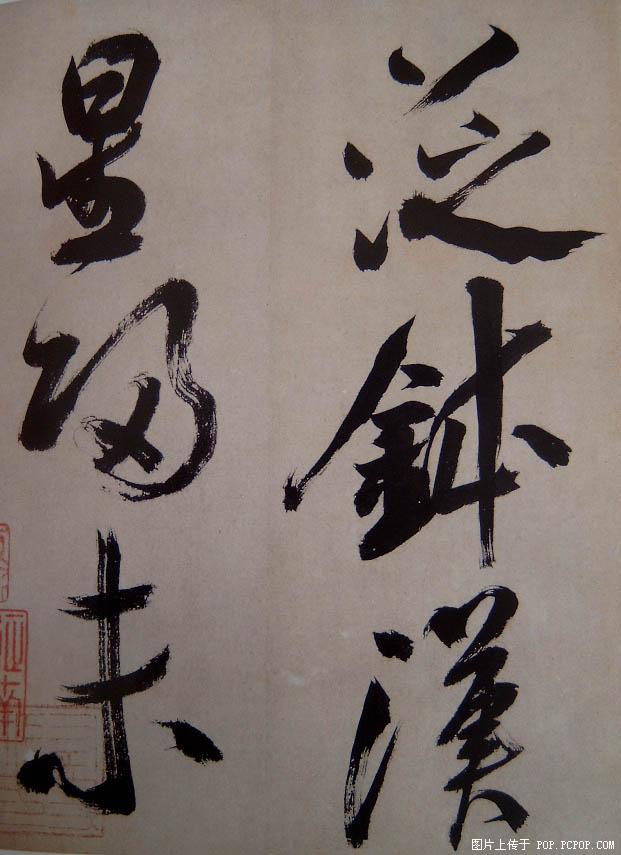 泛鉢漢
星歸未
图片上传于 POP.PCPOP.COM